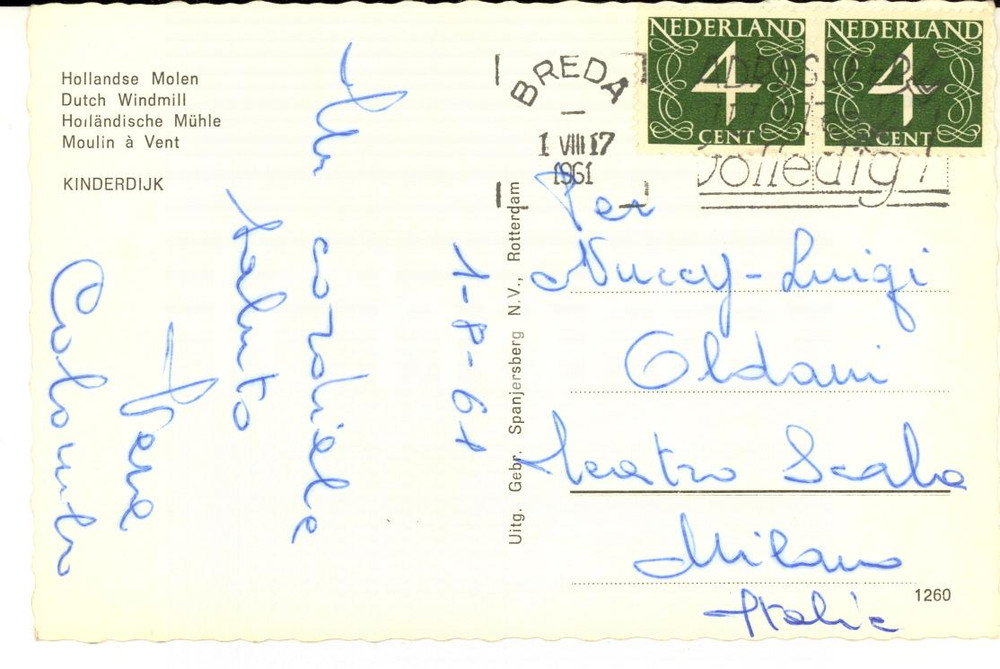 Hollandse Molen
Dutch Windmill
Holländische Mühle
Moulin à Vent
KINDERDIJK
1-8-61
Un
cordiale
saluto
Colombo
Uitg. Gebr. Spanjersberg N.V., Rotterdam
BREDA
1 VIII 17
1961
NEDERLAND
4
CENT
NEDERLAND
4
CENT
volledig!
Per
Nuccy-Luigi
Oldani
Teatro Scala
Milano
Italia
1260